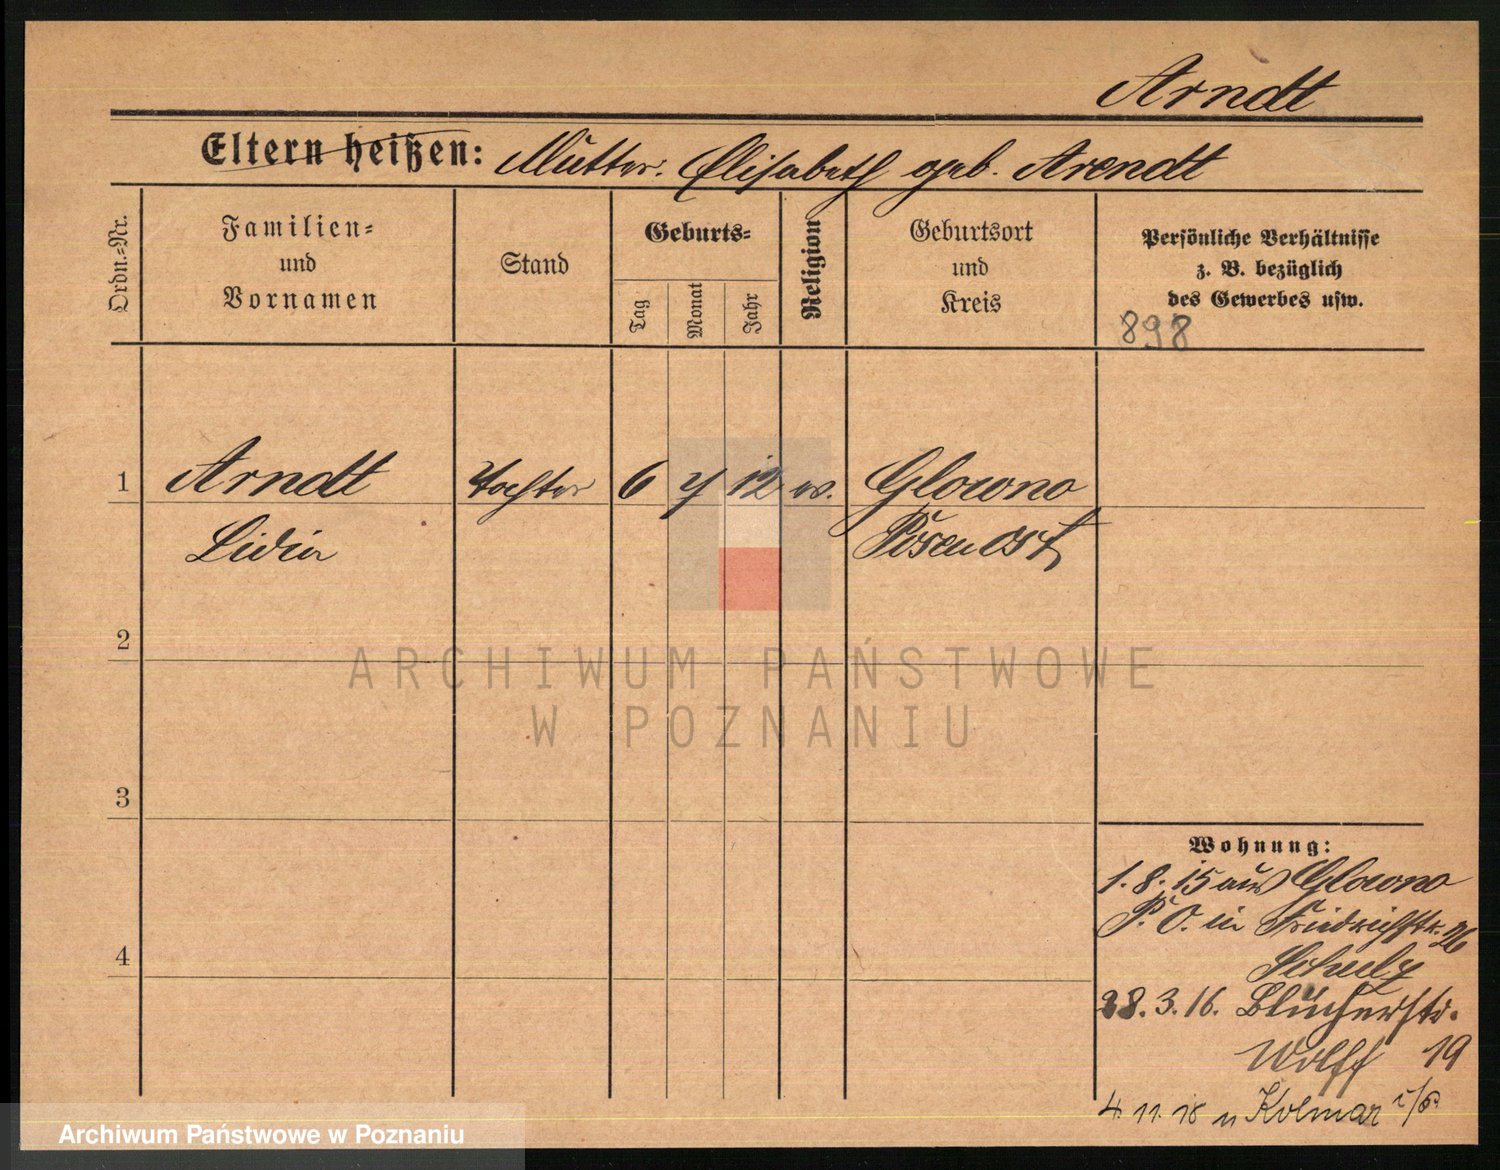 Arndt
Eltern heißen: Mutter. Elisabeth geb. Arendt
Ordn.-Nr.
Familien-
und
Vornamen
Stand
Geburts-
Tag
Monat
Jahr
Religion
Geburtsort
und
Kreis
Persönliche Verhältnisse
z. B. bezüglich
des Gewerbes usw.
898
1 Arndt Tochter 6 7 12 ev. Glowno
Lidia Posen Ost
2
3
4
Wohnung:
1.8.15 aus Glowno
P. O. in Friedrichstr. 26
Schulz
28.3.16. Blücherstr.
Wolff 19
4.11.18 n Kolmar i/P
ARCHIWUM PAŃSTWOWE
W POZNANIU
Archiwum Państwowe w Poznaniu